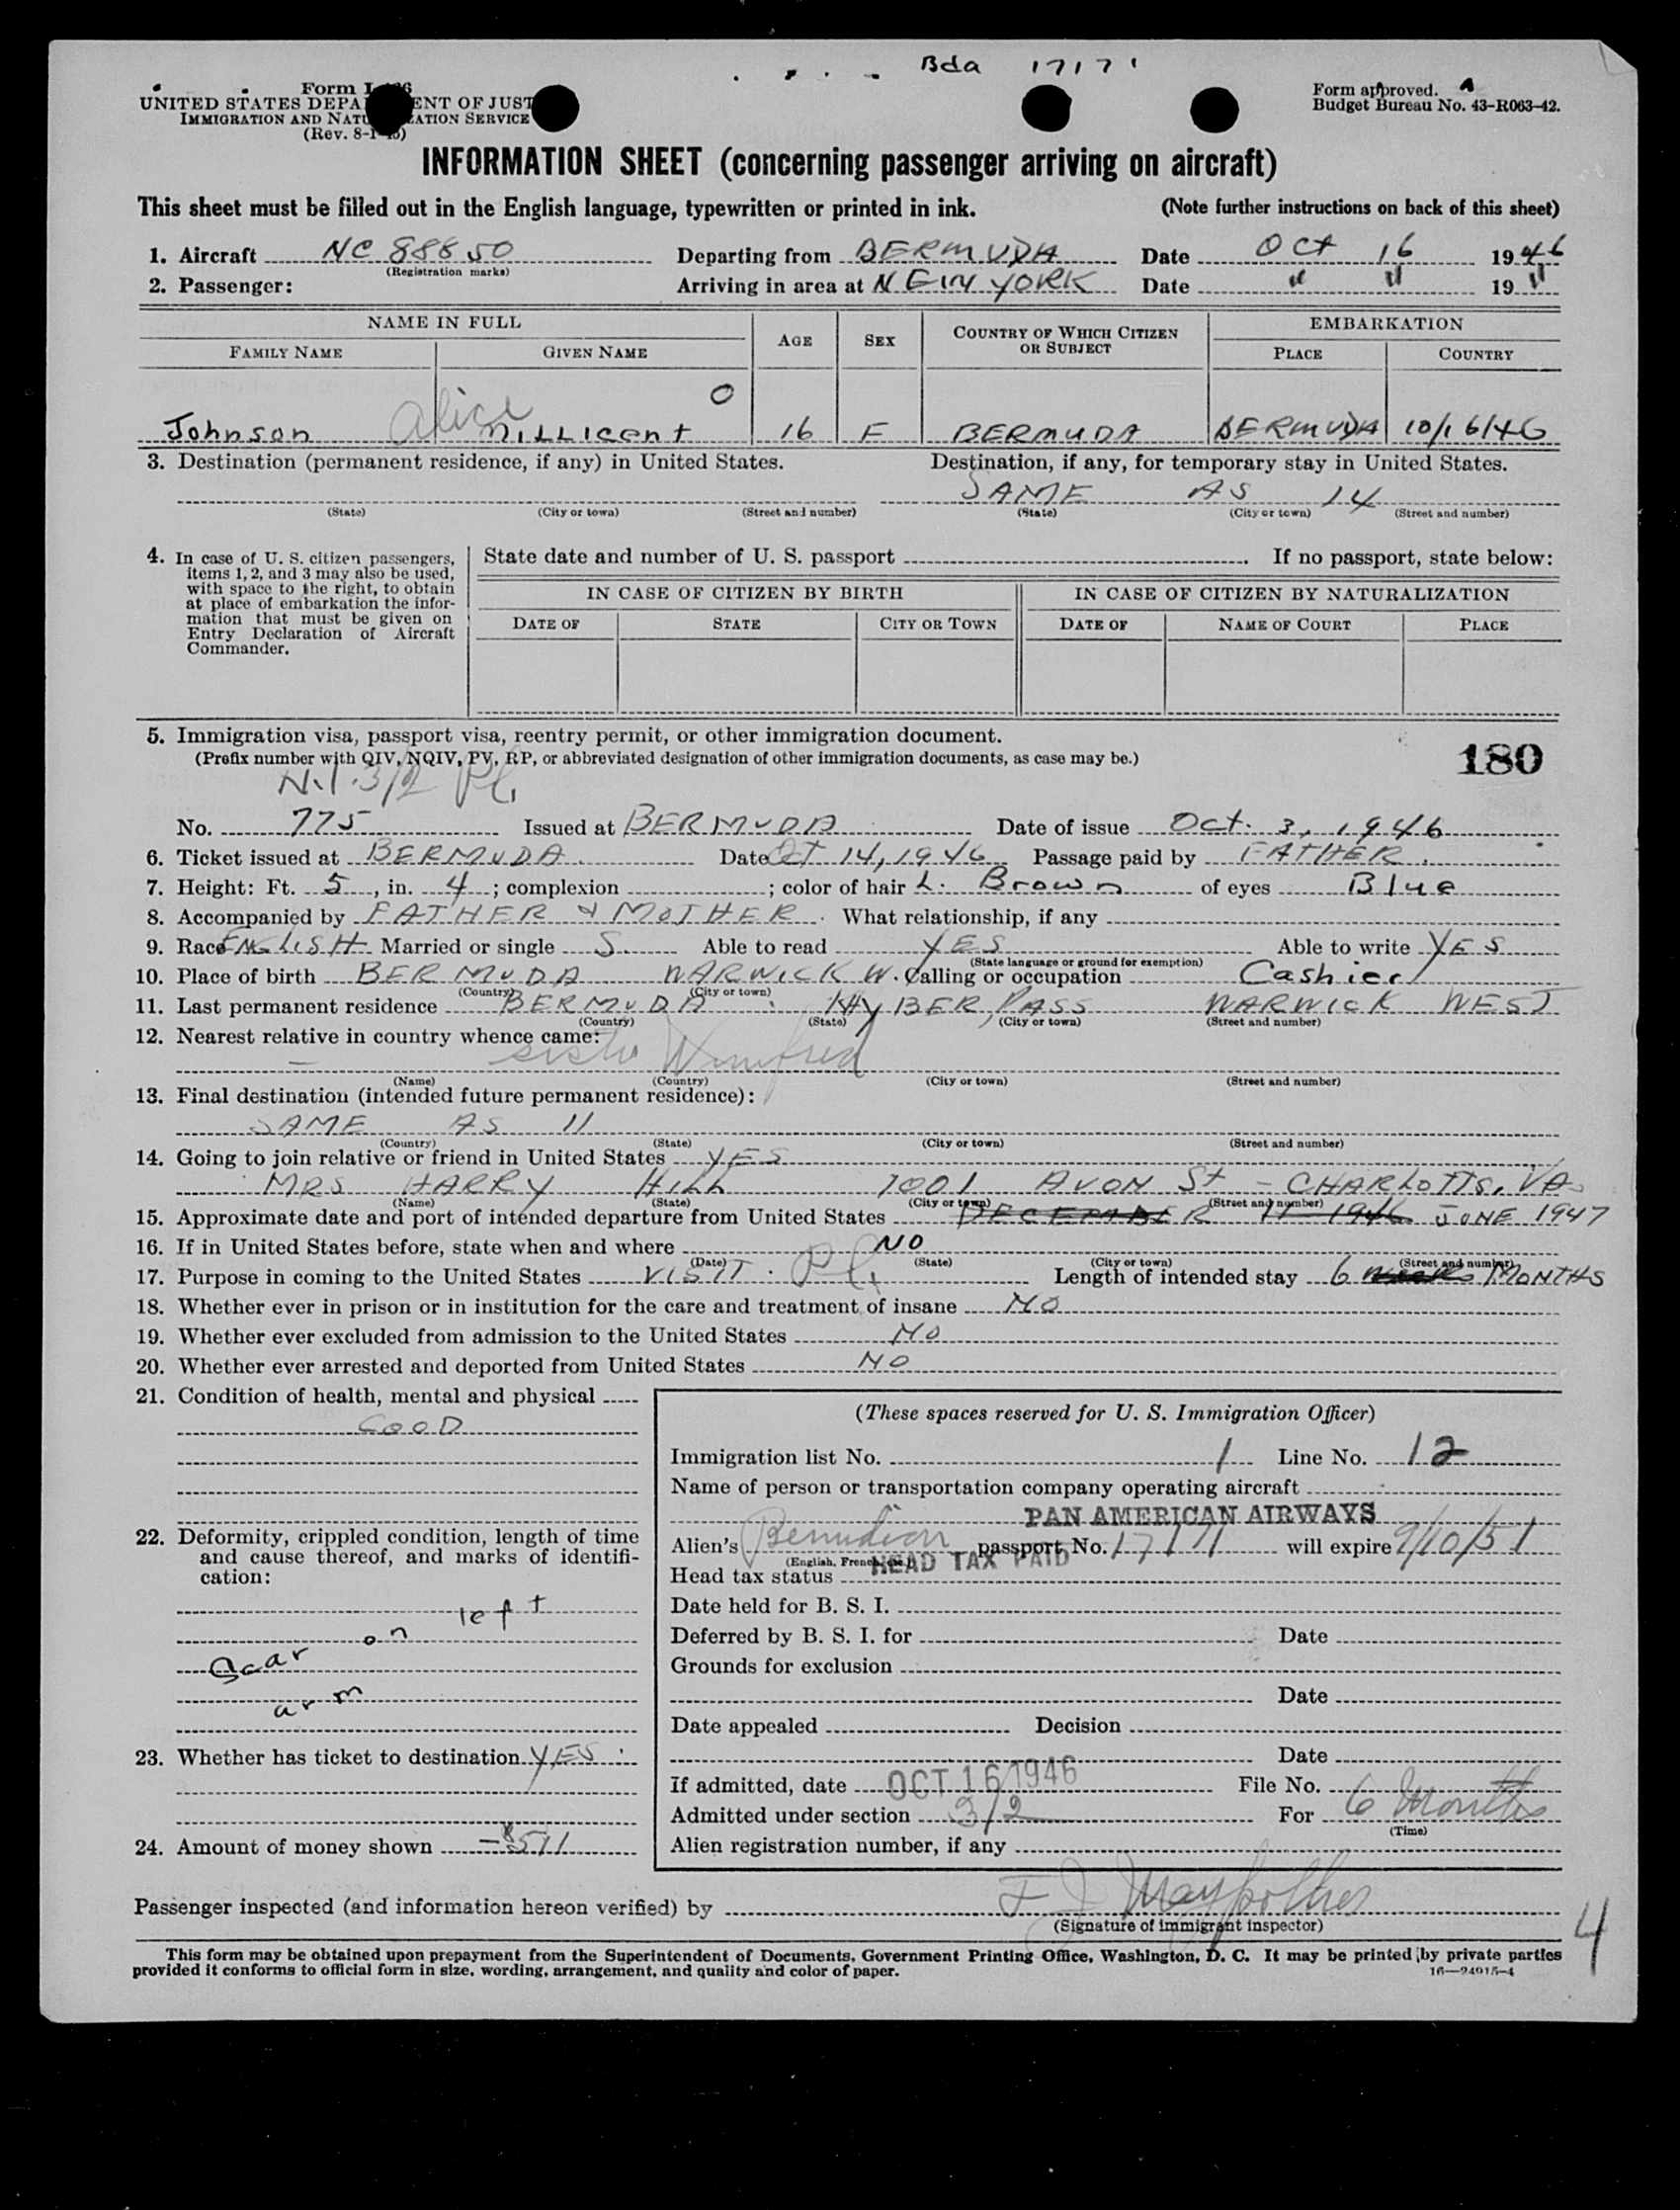 Bda 17171
Form I-466
UNITED STATES DEPARTMENT OF JUSTICE
IMMIGRATION AND NATURALIZATION SERVICE
(Rev. 8-1-45)
Form approved.
Budget Bureau No. 43-R063-42.
INFORMATION SHEET (concerning passenger arriving on aircraft)
This sheet must be filled out in the English language, typewritten or printed in ink. (Note further instructions on back of this sheet)
1. Aircraft NC 88850 Departing from BERMUDA Date Oct 16 1946
(Registration marks)
2. Passenger: Arriving in area at NEW YORK Date " " 19 "
NAME IN FULL AGE SEX COUNTRY OF WHICH CITIZEN OR SUBJECT EMBARKATION
FAMILY NAME GIVEN NAME PLACE COUNTRY
O
Johnson Alice MILLICENT 16 F BERMUDA BERMUDA 10/16/46
3. Destination (permanent residence, if any) in United States. Destination, if any, for temporary stay in United States.
SAME AS 14
(State) (City or town) (Street and number) (State) (City or town) (Street and number)
4. In case of U. S. citizen passengers, items 1, 2, and 3 may also be used, with space to the right, to obtain at place of embarkation the information that must be given on Entry Declaration of Aircraft Commander.
State date and number of U. S. passport . If no passport, state below:
IN CASE OF CITIZEN BY BIRTH IN CASE OF CITIZEN BY NATURALIZATION
DATE OF STATE CITY OR TOWN DATE OF NAME OF COURT PLACE
5. Immigration visa, passport visa, reentry permit, or other immigration document.
(Prefix number with QIV, NQIV, PV, RP, or abbreviated designation of other immigration documents, as case may be.)
180
N.I. 3/2 Pl.
No. 775 Issued at BERMUDA Date of issue Oct. 3, 1946
6. Ticket issued at BERMUDA. Date Oct 14, 1946 Passage paid by FATHER.
7. Height: Ft. 5, in. 4; complexion ; color of hair L. Brown of eyes Blue
8. Accompanied by FATHER & MOTHER. What relationship, if any
9. Race ENGLISH Married or single S. Able to read YES Able to write YES
(State language or ground for exemption)
10. Place of birth BERMUDA WARWICK W. Calling or occupation Cashier
(Country) (City or town)
11. Last permanent residence BERMUDA KHYBER PASS WARWICK WEST
(Country) (State) (City or town) (Street and number)
12. Nearest relative in country whence came:
sister Winifred
(Name) (Country) (City or town) (Street and number)
13. Final destination (intended future permanent residence):
SAME AS 11
(Country) (State) (City or town) (Street and number)
14. Going to join relative or friend in United States YES
MRS HARRY HILL 1001 AVON St - CHARLOTTS, VA
(Name) (State) (City or town) (Street and number)
15. Approximate date and port of intended departure from United States DECEMBER 11 1946 JUNE 1947
16. If in United States before, state when and where NO
(Date) (State) (City or town) (Street and number)
17. Purpose in coming to the United States VISIT. Pl. Length of intended stay 6 weeks MONTHS
18. Whether ever in prison or in institution for the care and treatment of insane NO
19. Whether ever excluded from admission to the United States NO
20. Whether ever arrested and deported from United States NO
21. Condition of health, mental and physical
GOOD
22. Deformity, crippled condition, length of time and cause thereof, and marks of identification:
Scar on left
arm
23. Whether has ticket to destination YES
24. Amount of money shown
(These spaces reserved for U. S. Immigration Officer)
Immigration list No. 1 Line No. 12
Name of person or transportation company operating aircraft
PAN AMERICAN AIRWAYS
Alien's Bermudian passport No. 17171 will expire 9/10/51
(English, French, etc.)
Head tax status HEAD TAX PAID
Date held for B. S. I.
Deferred by B. S. I. for Date
Grounds for exclusion
Date
Date appealed Decision
Date
If admitted, date OCT 16 1946 File No.
Admitted under section 3/2 For 6 Months
(Time)
Alien registration number, if any
Passenger inspected (and information hereon verified) by
(Signature of immigrant inspector)
4
This form may be obtained upon prepayment from the Superintendent of Documents, Government Printing Office, Washington, D. C. It may be printed by private parties
provided it conforms to official form in size, wording, arrangement, and quality and color of paper. 16—24915-4